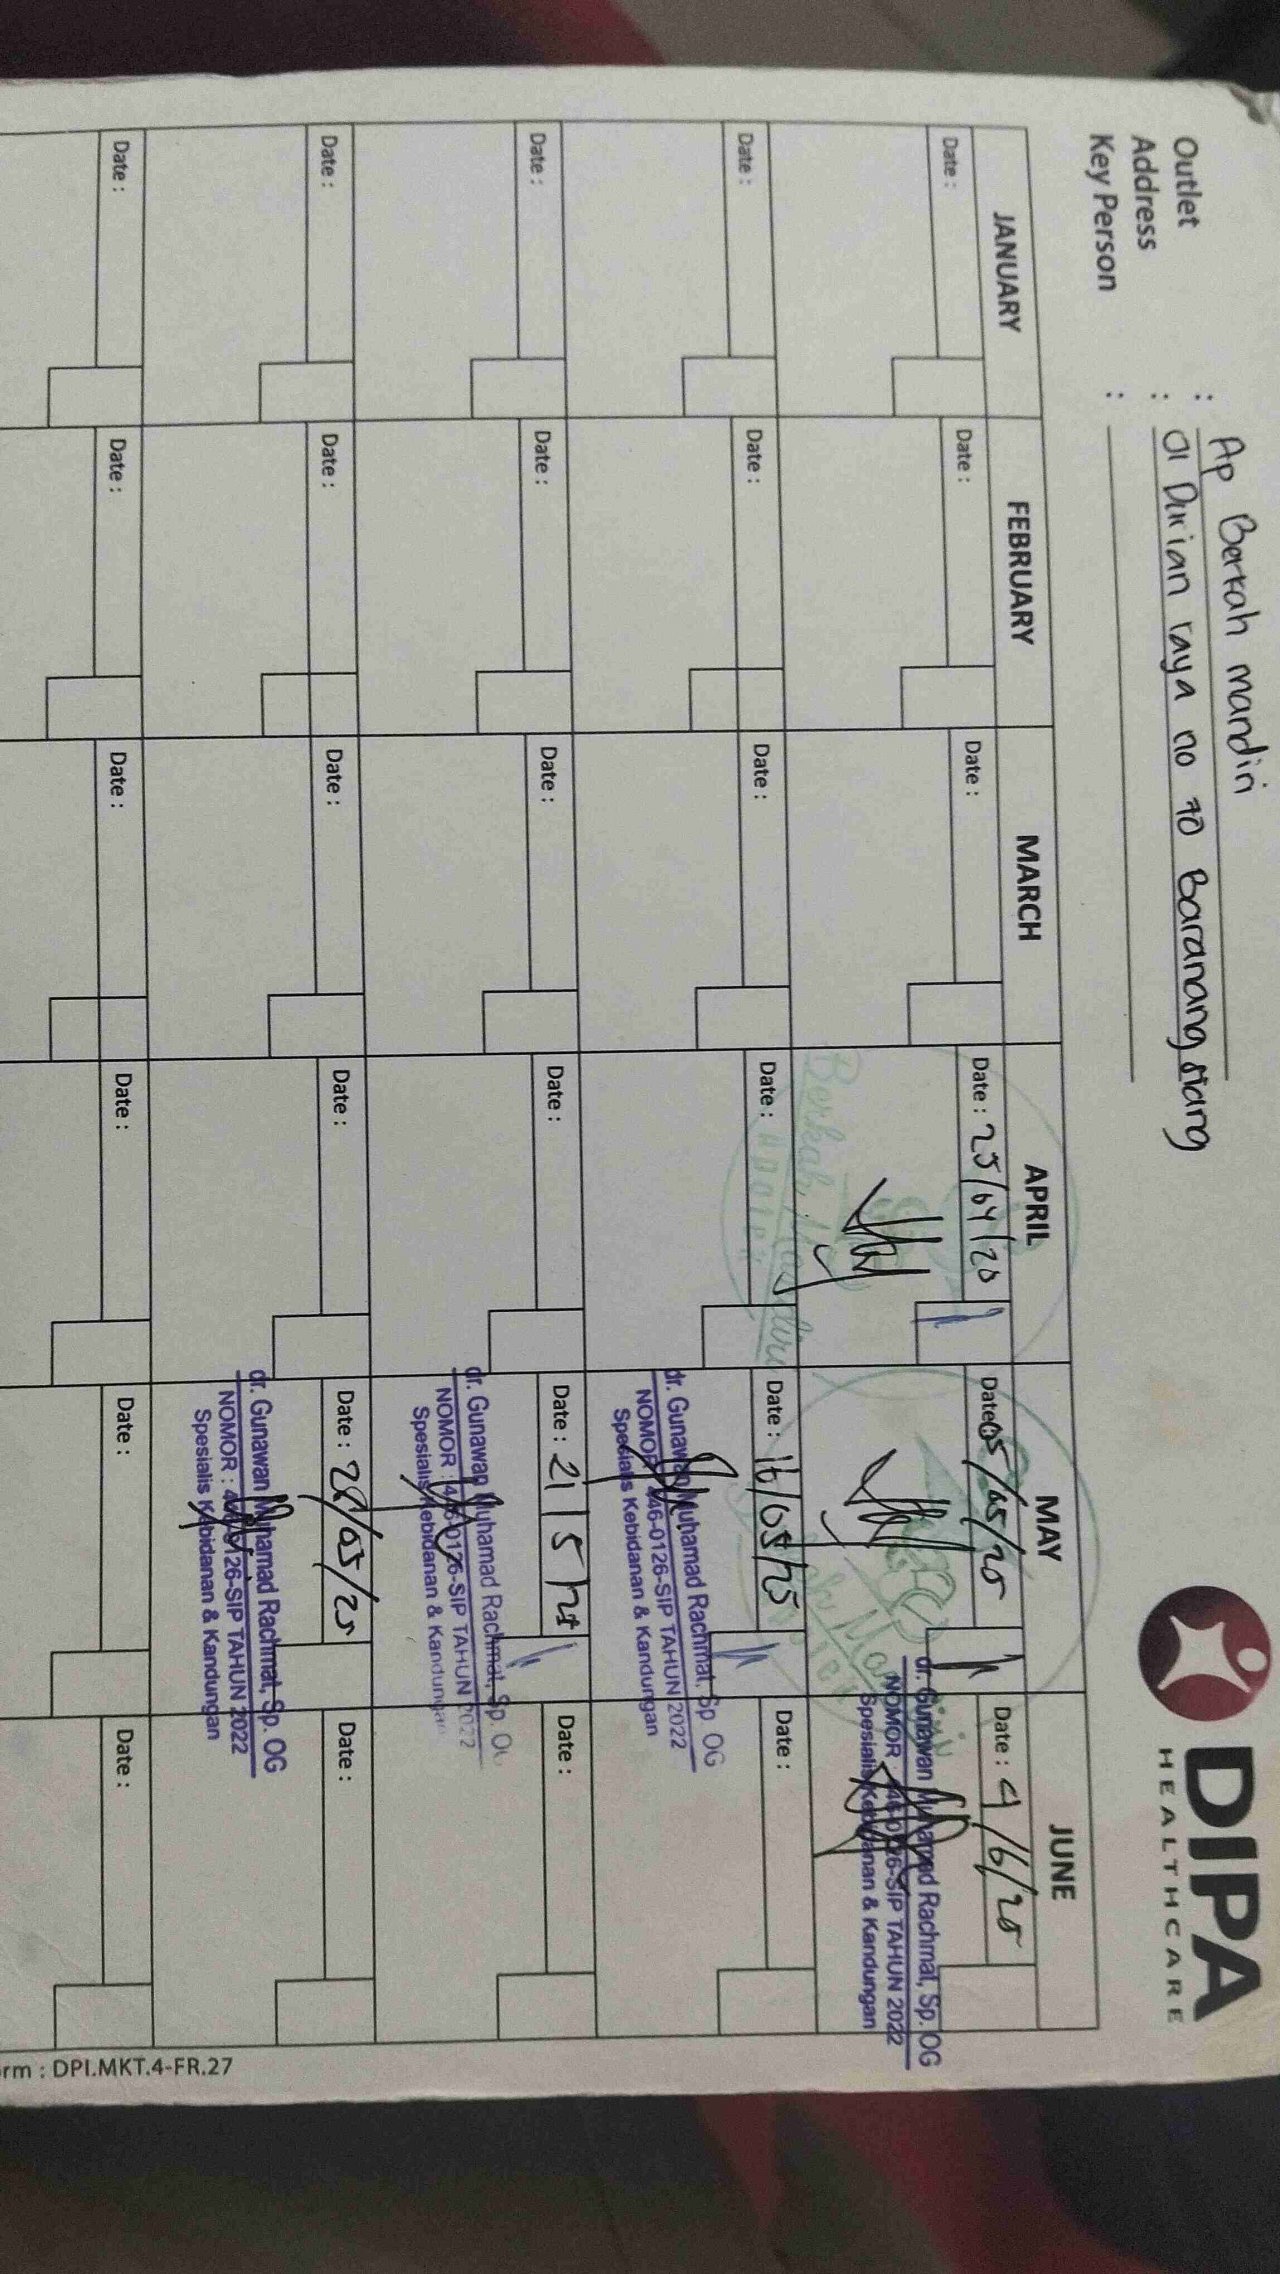 DIPA
HEALTHCARE
Outlet : Ap Berkah mandiri
Address : Jl Durian raya no 10 Baranang siang
Key Person :
JANUARY FEBRUARY MARCH APRIL MAY JUNE
Date : Date : Date : Date : 25/04/20 Date : 05/05/25 Date : 4/6/25
Berkah Mandiri
dr. Gunawan Muhamad Rachmat, Sp. OG
NOMOR : 446-0126-SIP TAHUN 2022
Spesialis Kebidanan & Kandungan
Date : Date : Date : Date : Date : 16/05/25 Date :
dr. Gunawan Muhamad Rachmat, Sp. OG
NOMOR : 446-0126-SIP TAHUN 2022
Spesialis Kebidanan & Kandungan
Date : Date : Date : Date : Date : 21/5/25 Date :
dr. Gunawan Muhamad Rachmat, Sp. OG
NOMOR : 446-0126-SIP TAHUN 2022
Spesialis Kebidanan & Kandungan
Date : Date : Date : Date : Date : 28/05/25 Date :
dr. Gunawan Muhamad Rachmat, Sp. OG
NOMOR : 446-0126-SIP TAHUN 2022
Spesialis Kebidanan & Kandungan
Date : Date : Date : Date : Date : Date :
rm : DPI.MKT.4-FR.27